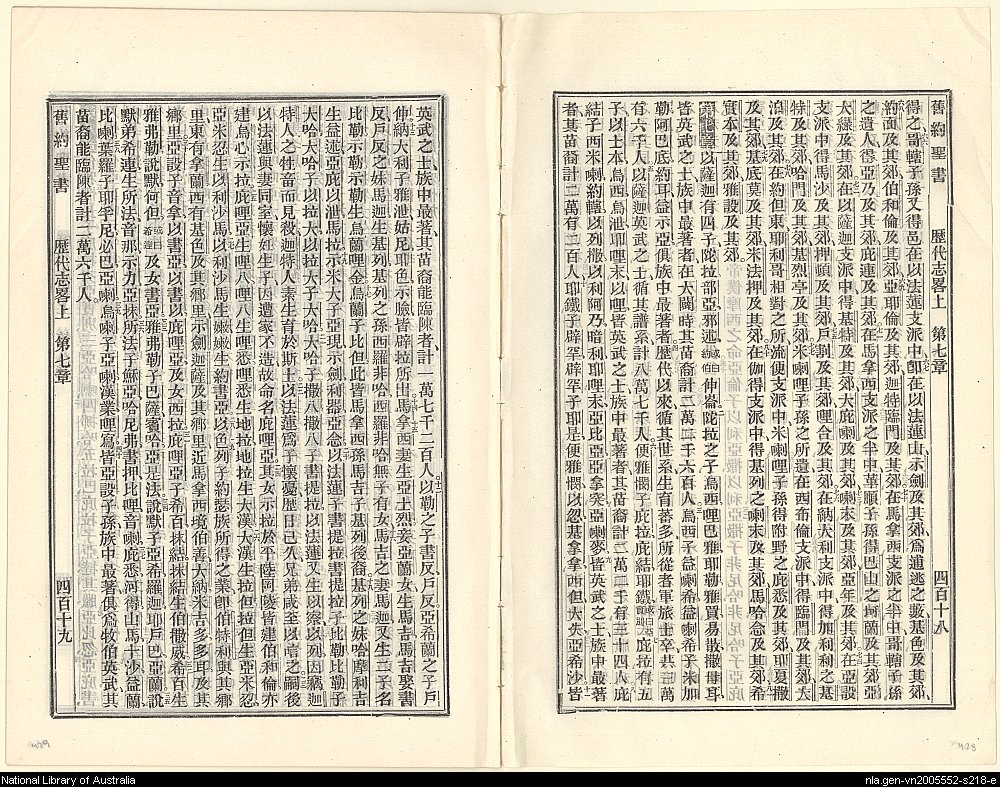 舊約聖書 歷代志畧上 第七章 四百十八
得之哥轄子孫又得邑在以法蓮支派中卽在以法蓮山示劍及其郊爲逋逃之藪基色及其郊
約面及其郊伯和倫及其郊亞耶倫及其郊迦特臨門及其郊在馬拿西支派之半中哥轄子孫
之遺人得亞乃及其郊庇連及其郊在馬拿西支派之半中革順子孫得巴山之哥蘭及其郊亞
大綠及其郊在以薩迦支派中得基特及其郊大庇喇及其郊喇末及其郊亞年及其郊在亞設
支派中得馬沙及其郊押頓及其郊戶割及其郊哩合及其郊在納大利支派中得加利利之基
特及其郊哈門及其郊基烈亭及其郊米喇哩子孫之所遺在西布倫支派中得臨門及其郊大
泊及其郊在約但東耶利哥相對之河流便支派中米喇哩子孫得附野之庇悉及其郊耶夏撒
及其郊基底莫及其郊米法押及其郊在伽得支派中得基列之喇末及其郊馬哈念及其郊希
實本及其郊雅設及其郊
以薩迦有四子陀拉部亞邪述伸崙陀拉之子烏西哩巴雅耶勒雅買易散撒母耳
皆英武之士族中最著者在大闢時其苗裔計二萬二千六百人烏西子益喇希益喇希子米加
勒阿巴底約耳益示亞俱族中最著者歷代以來循其世系生育蕃多所從者軍旅士卒共三萬
有六千人以薩迦英武之士循其譜系計八萬七千人便雅憫子庇拉庇結耶鐵庇拉有五
子以士本烏西烏泄耶哩末以哩皆英武之士族中最著者其苗裔計二萬二千有三十四人庇
結子西米喇約轄以列撒以利阿乃暗利耶哩末亞比亞亞拿突亞喇麥皆英武之士族中最著
者其苗裔計二萬有二百人耶鐵子辟罕辟罕子耶是便雅憫以忽基拿拿西但大失亞希沙皆
英武之士族中最著其苗裔能臨陳者計一萬七千二百人以勒之子書反戶反亞希蘭之子戶
伸納大利子雅泄姑尼耶色示臉皆辟拉所出馬拿西妻生亞土烈妾亞蘭女生馬吉馬吉娶書
反戶反之妹馬迦生基列基列之孫西羅非哈西羅非哈無子有女馬吉之妻馬迦又生二子名
比勒示勒示勒生烏蘭哩金烏蘭子比但此皆馬拿西孫馬吉子基列後裔基列之妹哈摩利吉
生益述亞庇以泄馬拉示米大子亞現示劍利器亞念以法蓮子書提拉書提拉子比勒比勒子
大哈大哈子以拉大以拉大子大哈大哈子撒八撒八子書提拉以法蓮又生以察以列因竊迦
特人之牲畜而見殺迦特人素生育於斯土以法蓮爲子懷憂歷日已久兄弟咸至以唁之嗣後
以法蓮與妻同室懷妊生子因遭家不造故命名庇哩亞其女示拉於平陸阿陵皆建伯和倫亦
建烏心示拉庇哩亞生哩八哩八生哩悉哩悉生地拉地拉生大漢大漢生拉但拉但生亞米忽
亞米忽生以利沙馬以利沙馬生嫩嫩生約書亞以色列子約瑟族所得之業卽伯特利與其鄉
里東有拿蘭西有基色及其鄉里示劍迦薩及其鄉里近馬拿西境伯善大納米吉多多耳及其
鄉里亞設子音拿以書亞以書以庇哩亞及女西拉庇哩亞子希百抹結抹結生伯撒威希百生
雅弗勒說默何但及女書亞雅弗勒子巴薩賓哈亞是法說默子亞希羅迦耶戶巴亞蘭說
默弟希連生所法音那示力亞抹所法子穌亞哈尼弗書押比哩音喇庇悉河得山馬十沙益蘭
比喇葉羅子耶孚尼必巴亞喇烏喇子亞喇漢業哩寫皆亞設子孫族中最著俱爲牧伯英武其
苗裔能臨陳者計二萬六千人
舊約聖書 歷代志畧上 第七章 四百十九
National Library of Australia
nla.gen-vn2005552-s218-e